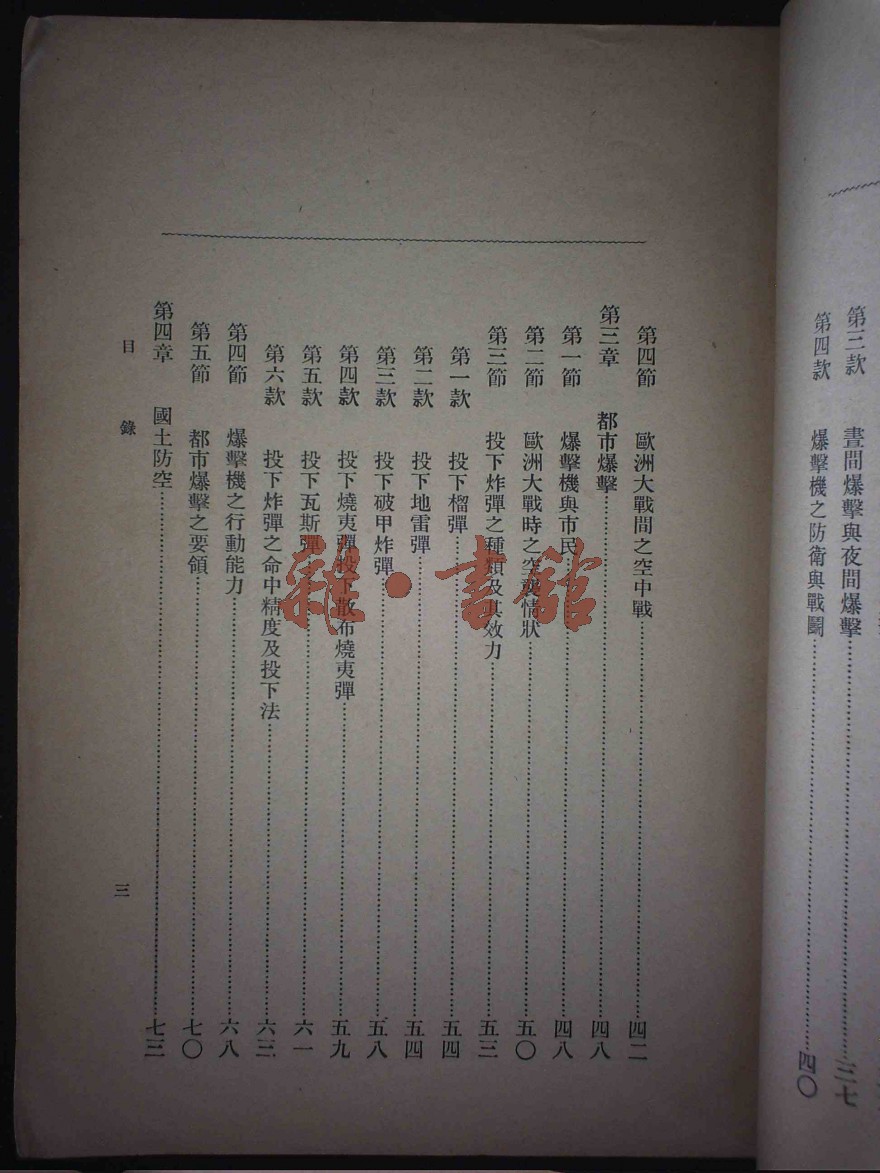 第三款　晝間爆擊與夜間爆擊……三七
第四款　爆擊機之防衛與戰鬭……四〇
第四節　歐洲大戰間之空中戰……四二
第三章　都市爆擊……四八
第一節　爆擊機與市民……四八
第二節　歐洲大戰時之空襲情狀……五〇
第三節　投下炸彈之種類及其效力……五三
第一款　投下榴彈……五四
第二款　投下地雷彈……五四
第三款　投下破甲炸彈……五八
第四款　投下燒夷彈投下散布燒夷彈……五九
第五款　投下瓦斯彈……六一
第六款　投下炸彈之命中精度及投下法……六三
第四節　爆擊機之行動能力……六八
第五節　都市爆擊之要領……七〇
第四章　國土防空……七三
目錄
三
雜·書館